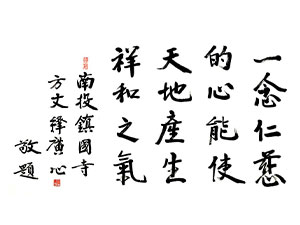 一念仁慈
的心能使
天地產生
祥和之氣
南投鎮國寺
方丈釋廣心
敬題